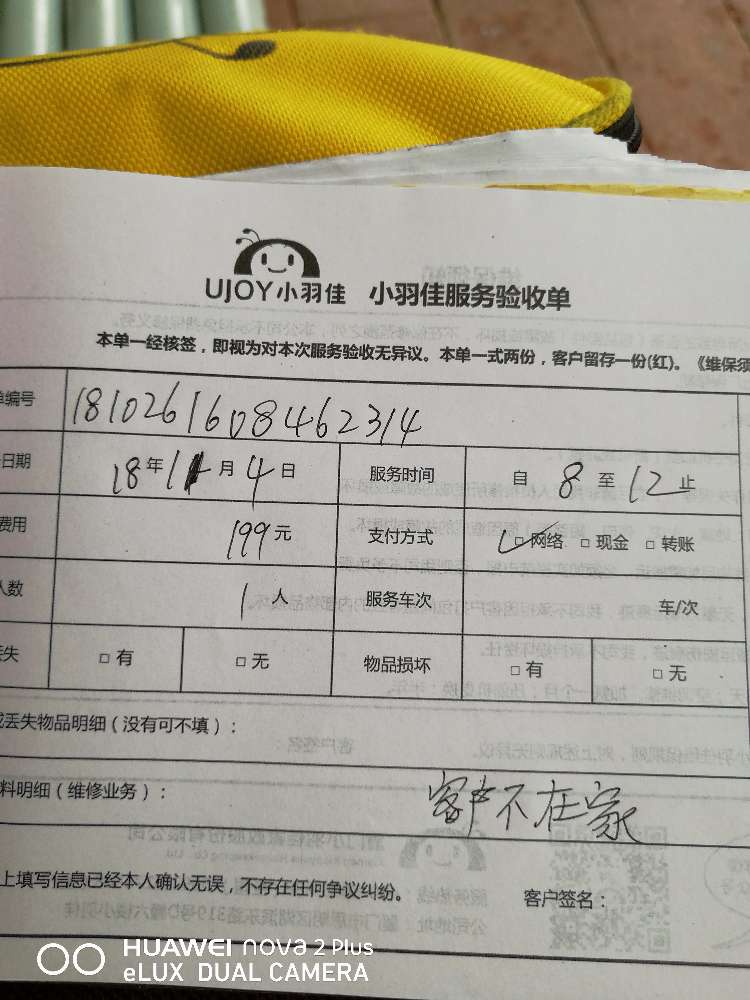 UJOY小羽佳 小羽佳服务验收单
本单一经核签，即视为对本次服务验收无异议。本单一式两份，客户留存一份(红)。《维保须
单编号 1810261608462314
日期 18年11月4日 服务时间 自8至12止
费用 199元 支付方式 □网络 □现金 □转账
人数 1人 服务车次 车/次
丢失 □有 □无 物品损坏 □有 □无
或丢失物品明细（没有可不填）：
料明细（维修业务）：
客户不在家
上填写信息已经本人确认无误，不存在任何争议纠纷。 客户签名：
HUAWEI nova 2 Plus
eLUX DUAL CAMERA